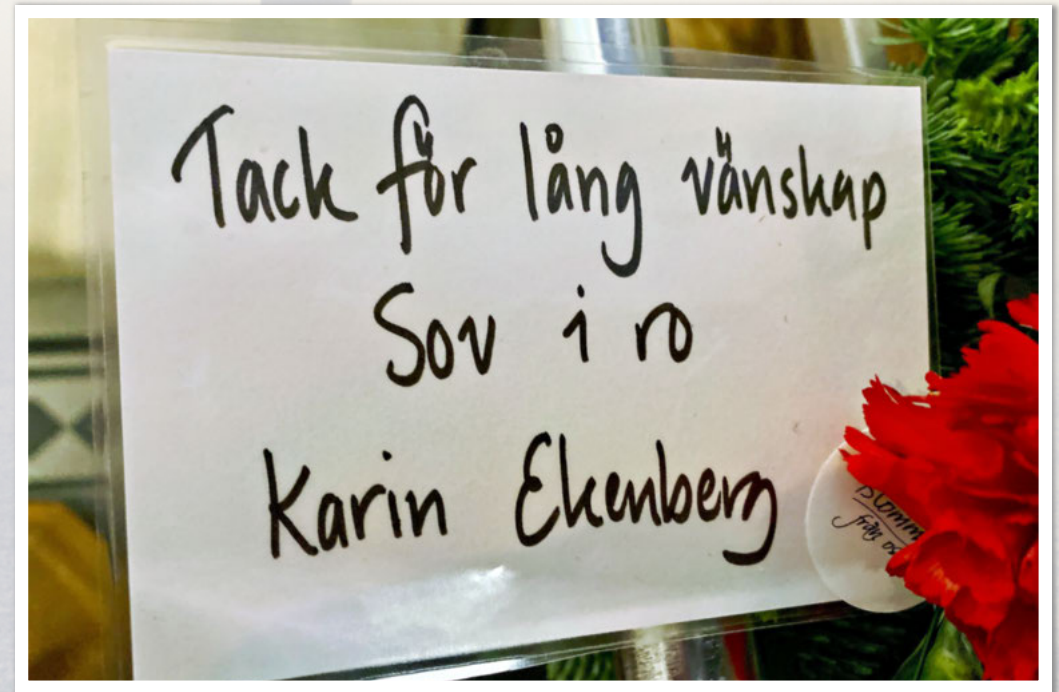 Tack för lång vänskap
Sov i ro
Karin Ekenberg
från